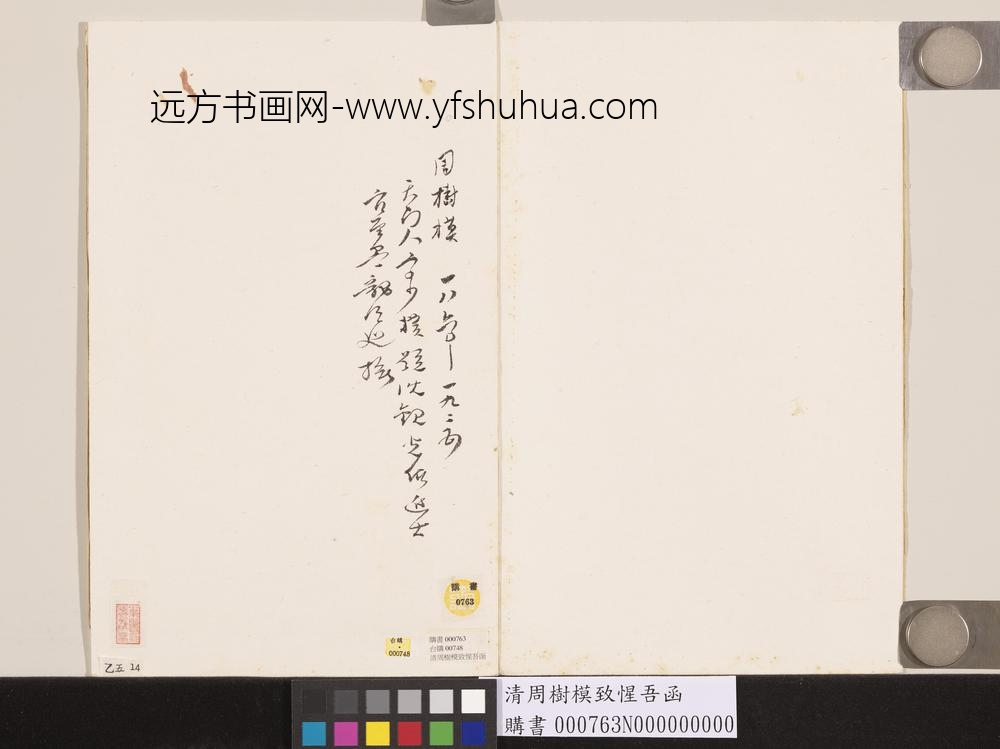 远方书画网-www.yfshuhua.com
周樹模 一八六〇—一九二五
天门人字少樸號沈觀光緒進士
官至黑龍江巡撫
購書
0763
台購
000748
購書 000763
台購 00748
清周樹模致惺吾函
乙五 14
清周樹模致惺吾函
購書 000763N000000000